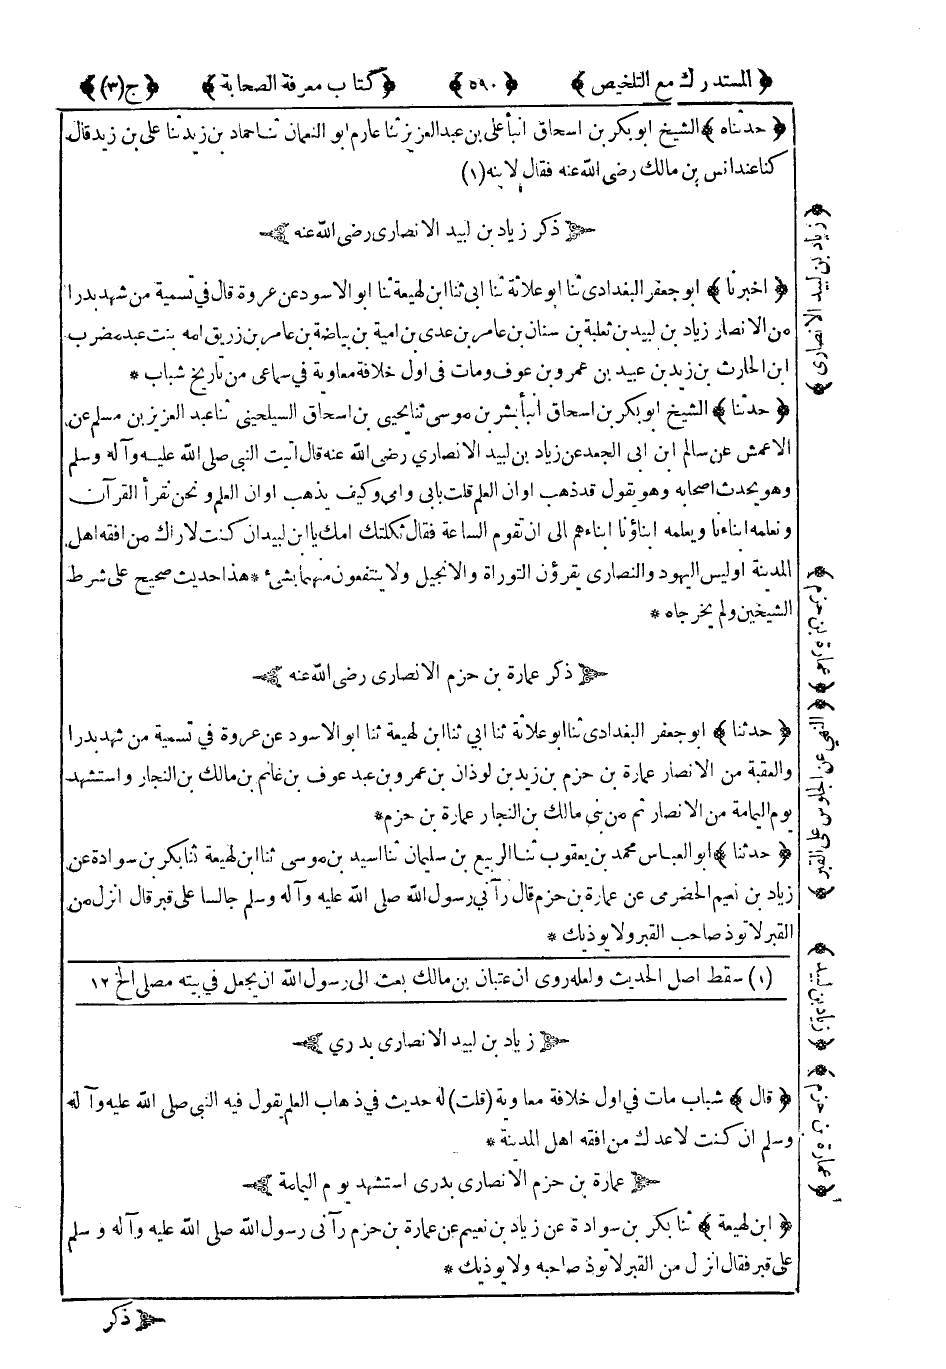 ﴿ المستدرك مع التلخيص ﴾ ﴿ ٥٩٠ ﴾ ﴿ كتاب معرفة الصحابة ﴾ ﴿ ج (٣) ﴾
﴿ حدثناه ﴾ الشيخ ابو بكر بن اسحاق انبأ على بن عبد العزيز ثنا عارم ابو النعمان ثنا حماد بن زيد ثنا على بن زيد قال
كنا عند انس بن مالك رضى الله عنه فقال لابنه (١)
ذكر زياد بن لبيد الانصارى رضى الله عنه
﴿ اخبرنا ﴾ ابو جعفر البغدادى ثنا ابو علاثة ثنا ابى ثنا ابن لهيعة ثنا ابو الاسود عن عروة قال فى تسمية من شهد بدرا
من الانصار زياد بن لبيد بن ثعلبة بن سنان بن عامر بن عدى بن امية بن بياضة بن عامر بن زريق امه بنت عبد مضرب
ابن الحارث بن زيد بن عبيد بن عمرو بن عوف ومات فى اول خلافة معاوية فى سماعى من تاريخ شباب *
﴿ حدثنا ﴾ الشيخ ابو بكر بن اسحاق انبأ بشر بن موسى ثنا يحيى بن اسحاق السيلحينى ثنا عبد العزيز بن مسلم عن
الاعمش عن سالم ابن ابى الجعد عن زياد بن لبيد الانصاري رضى الله عنه قال اتيت النبي صلى الله عليه وآله وسلم
وهو يحدث اصحابه وهو يقول قد ذهب اوان العلم قلت بابى وامى وكيف يذهب اوان العلم ونحن نقرأ القرآن
ونعلمه ابناءنا ويعلمه ابناؤنا ابناءهم الى ان تقوم الساعة فقال ثكلتك امك يا ابن لبيد ان كنت لاراك من افقه اهل
المدينة اوليس اليهود والنصارى يقرؤن التوراة والانجيل ولا ينتفعون منهما بشئ * هذا حديث صحيح على شرط
الشيخين ولم يخرجاه *
ذكر عمارة بن حزم الانصارى رضى الله عنه
﴿ حدثنا ﴾ ابو جعفر البغدادى ثنا ابو علاثة ثنا ابي ثنا ابن لهيعة ثنا ابو الاسود عن عروة في تسمية من شهد بدرا
والعقبة من الانصار عمارة بن حزم بن زيد بن لوذان بن عمرو بن عبد عوف بن غانم بن مالك بن النجار واستشهد
يوم اليمامة من الانصار ثم من بني مالك بن النجار عمارة بن حزم *
﴿ حدثنا ﴾ ابو العباس محمد بن يعقوب ثنا الربيع بن سليمان ثنا اسيد بن موسى ثنا ابن لهيعة ثنا بكر بن سوادة عن
زياد بن نعيم الحضرمى عن عمارة بن حزم قال رآني رسول الله صلى الله عليه وآله وسلم جالسا على قبر قال انزل من
القبر لا توذ صاحب القبر ولا يوذيك *
(١) سقط اصل الحديث ولعله روى ان عتبان بن مالك بعث الى رسول الله ان يجعل في بيته مصلى الخ ١٢
زياد بن لبيد الانصارى بدري
﴿ قال ﴾ شباب مات في اول خلافة معاوية (قلت) له حديث في ذهاب العلم يقول فيه النبي صلى الله عليه وآله
وسلم ان كنت لاعدك من افقه اهل المدينة *
عمارة بن حزم الانصارى بدرى استشهد يوم اليمامة
﴿ ابن لهيعة ﴾ ثنا بكر بن سوادة عن زياد بن نعيم عن عمارة بن حزم رآنى رسول الله صلى الله عليه وآله وسلم
على قبر فقال انزل من القبر لا توذ صاحبه ولا يوذيك *
ذكر
﴿ زياد بن لبيد الانصارى ﴾
﴿ عمارة بن حزم ﴾
﴿ النهي عن الجلوس على القبر ﴾
﴿ زياد بن لبيد ﴾
﴿ عمارة بن حزم ﴾